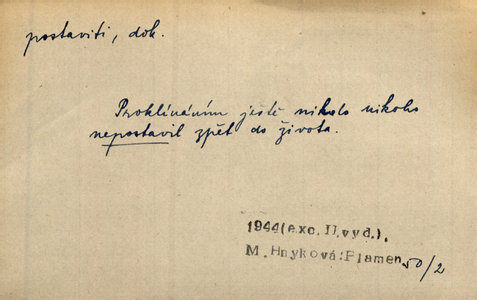 postaviti, dok.
Proklínáním ještě nikdo nikoho
nepostavil zpět do života.
1944(exc.II.vyd.),
M. Hnyková:Plamen
50/2